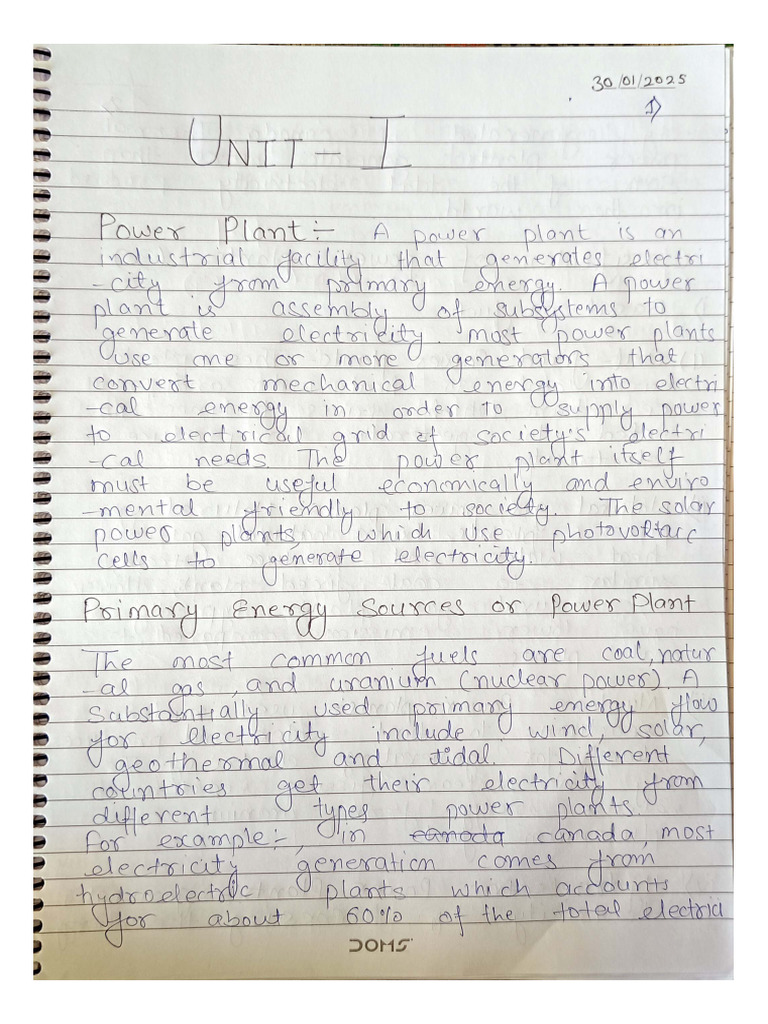 30/01/2025
1)
UNIT - I
Power Plant :- A power plant is an
industrial facility that generates electri
-city from primary energy. A power
plant is assembly of subsystems to
generate electricity. most power plants
use one or more generators that
convert mechanical energy into electri
-cal energy in order to supply power
to electrical grid of society's electri
-cal needs. The power plant itself
must be useful economically and enviro
-mental friendly to society. The solar
power plants which use photovoltaic
cells to generate electricity.
Primary Energy Sources or Power Plant
The most common fuels are coal, natur
-al gas, and uranium (nuclear power). A
Substantially used primary energy flow
for electricity include wind, solar,
geothermal and tidal. Different
countries get their electricity from
different types power plants.
for example:-, in canada canada, most
electricity generation comes from
hydroelectric plants which accounts
for about 60% of the total electric
DOMS